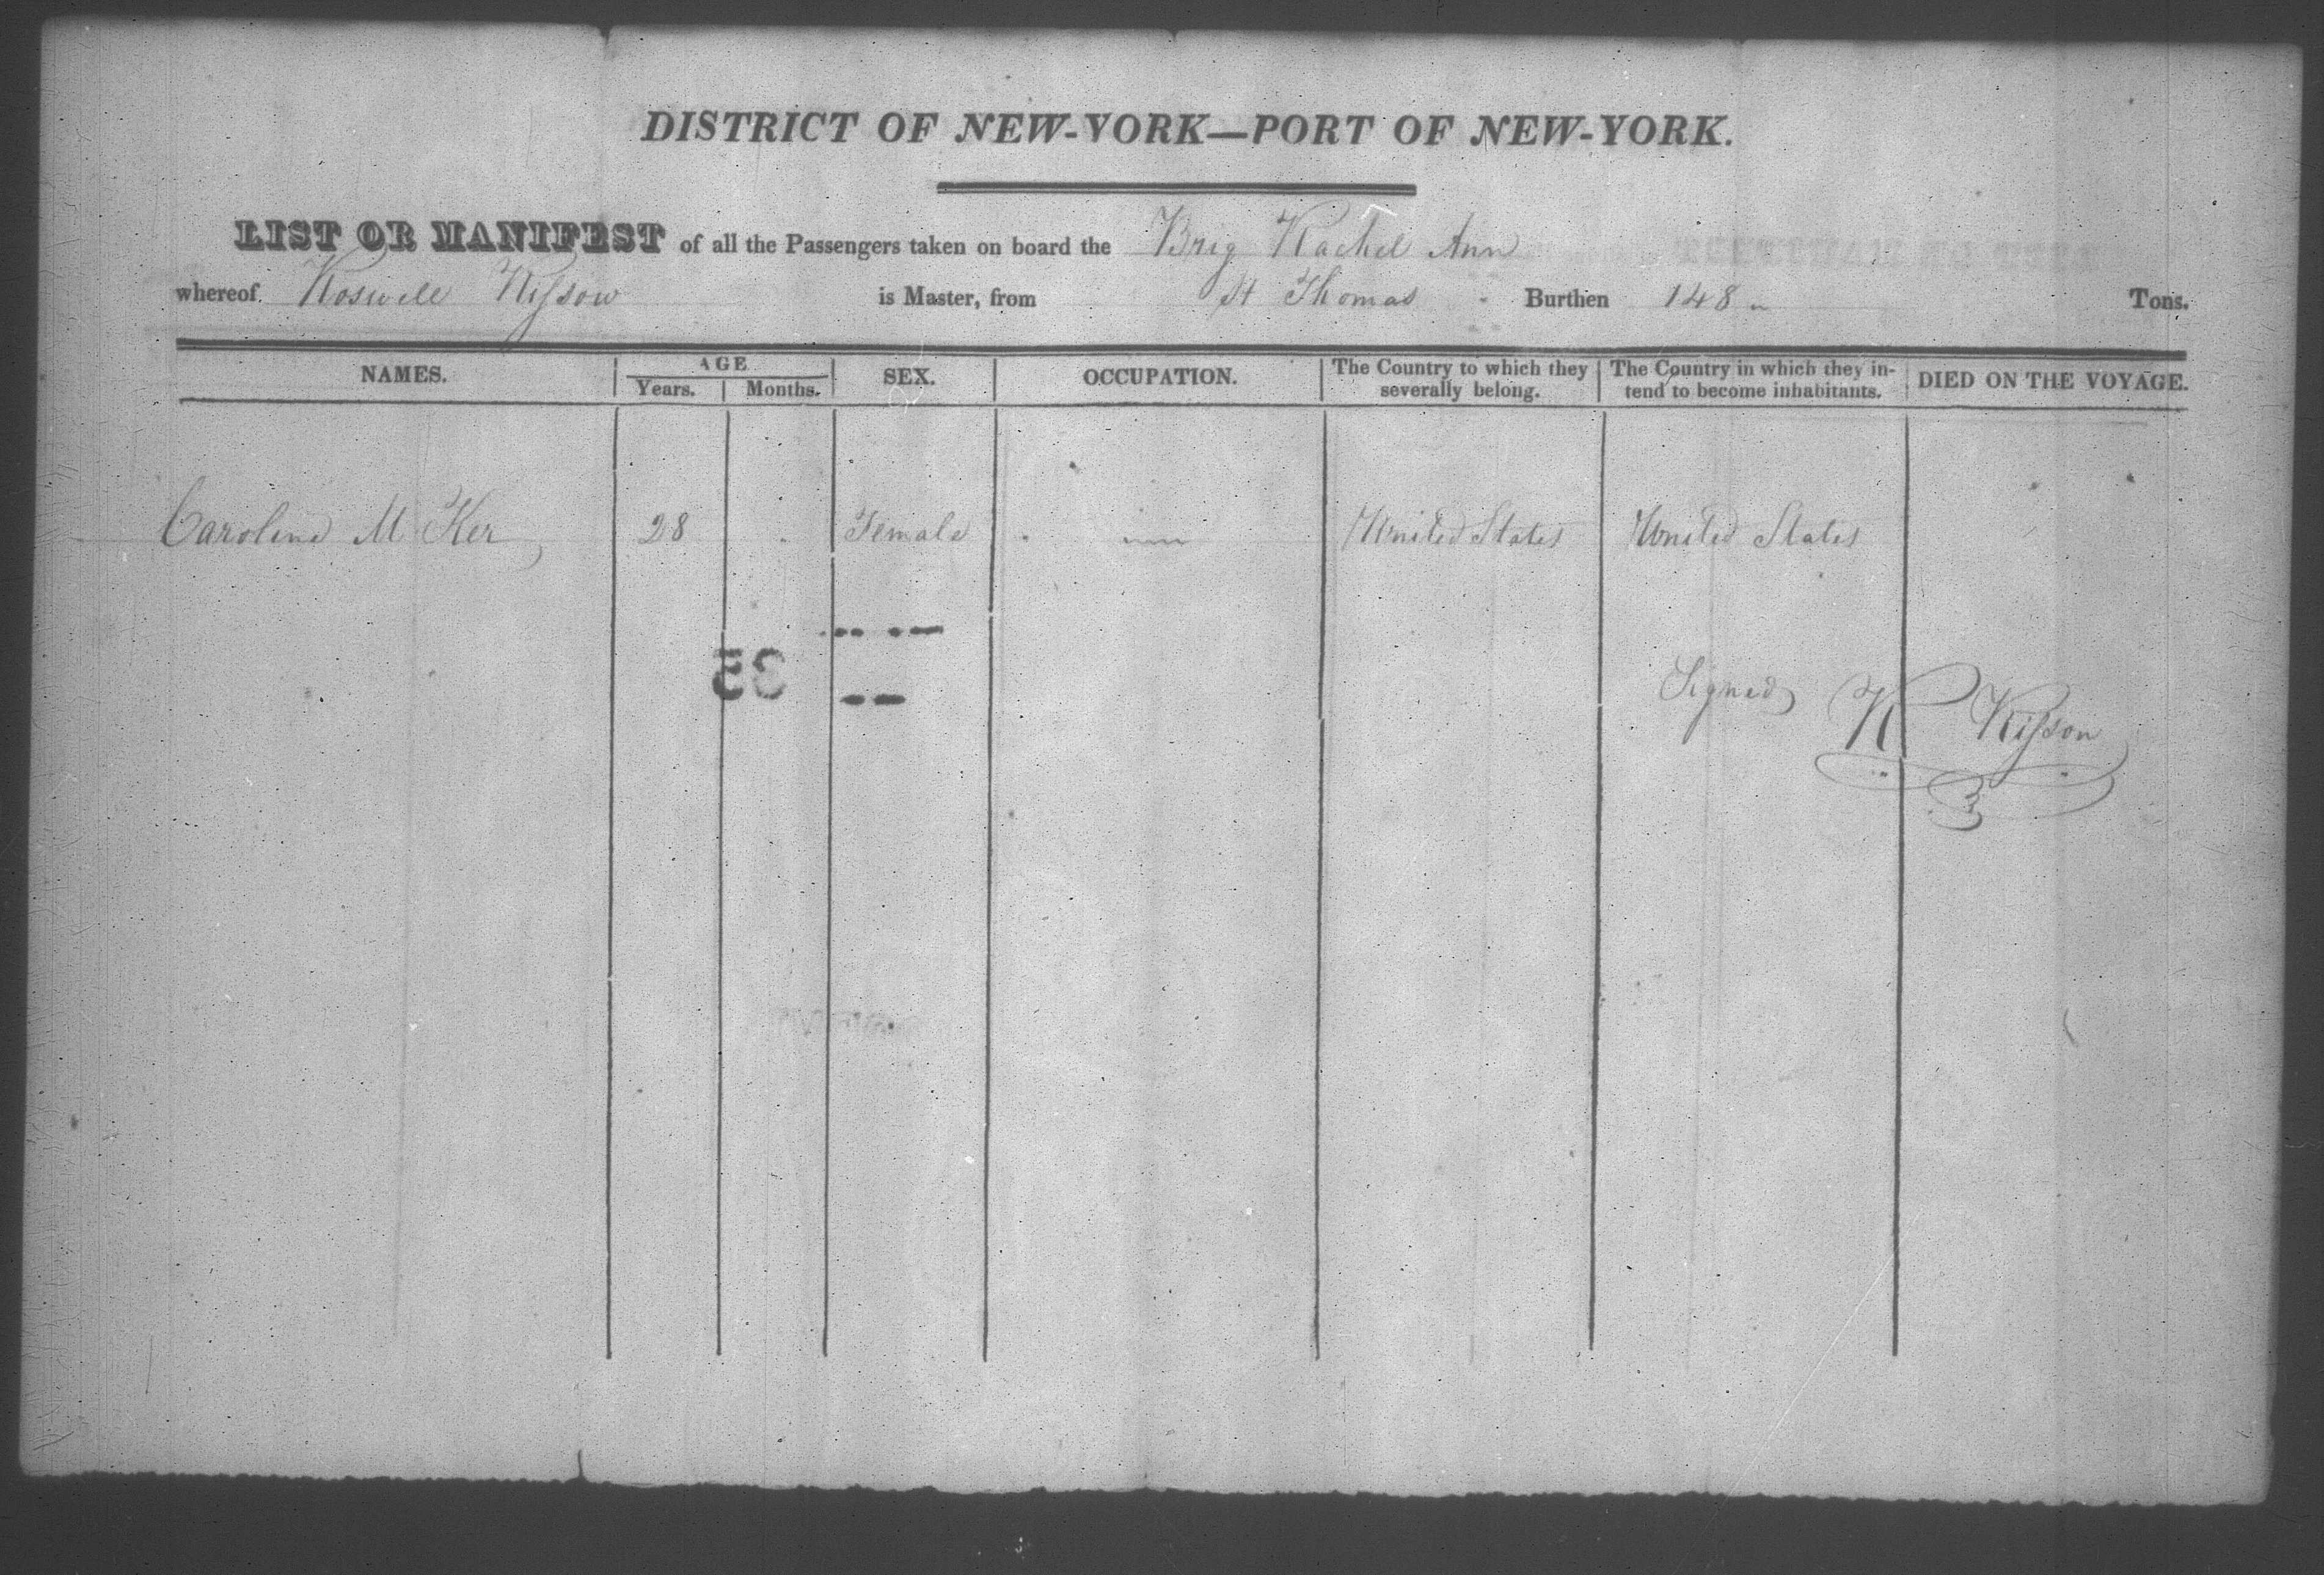 DISTRICT OF NEW-YORK—PORT OF NEW-YORK.
LIST OR MANIFEST of all the Passengers taken on board the Brig Rachel Ann
whereof Roswell is Master, from St Thomas Burthen 148 Tons.
NAMES. AGE SEX. OCCUPATION. The Country to which they severally belong. The Country in which they in-
Years. Months. tend to become inhabitants. DIED ON THE VOYAGE.
Caroline M Ker 28 Female United States United States
Signed